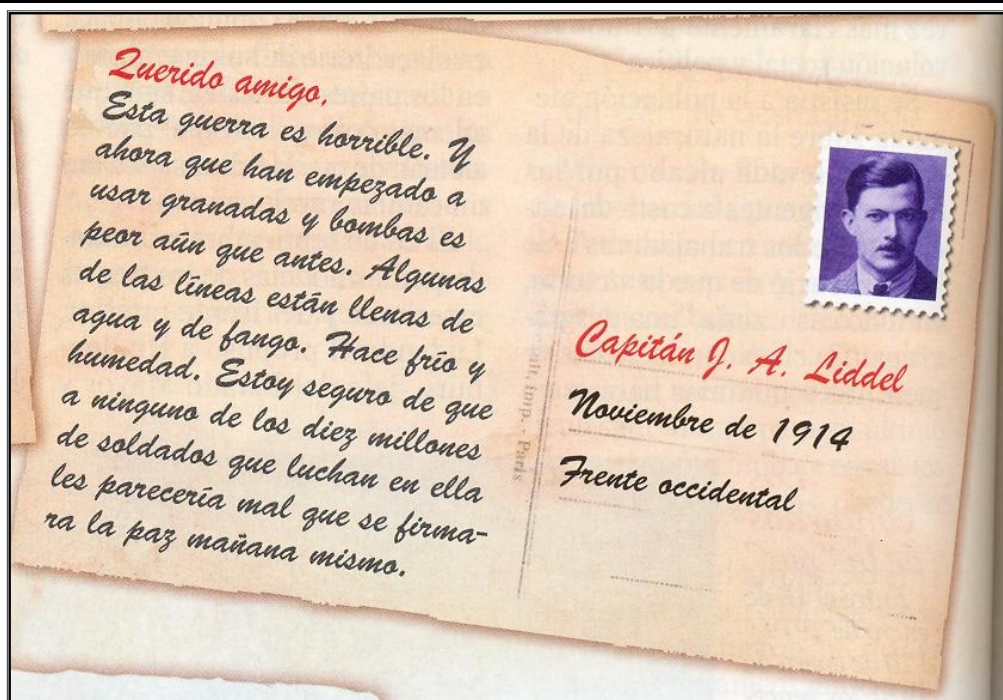 Querido amigo,
Esta guerra es horrible. Y
ahora que han empezado a
usar granadas y bombas es
peor aún que antes. Algunas
de las líneas están llenas de
agua y de fango. Hace frío y
humedad. Estoy seguro de que
a ninguno de los diez millones
de soldados que luchan en ella
les parecería mal que se firma-
ra la paz mañana mismo.
Capitán J. A. Liddel
Noviembre de 1914
Frente occidental
imp. - Paris